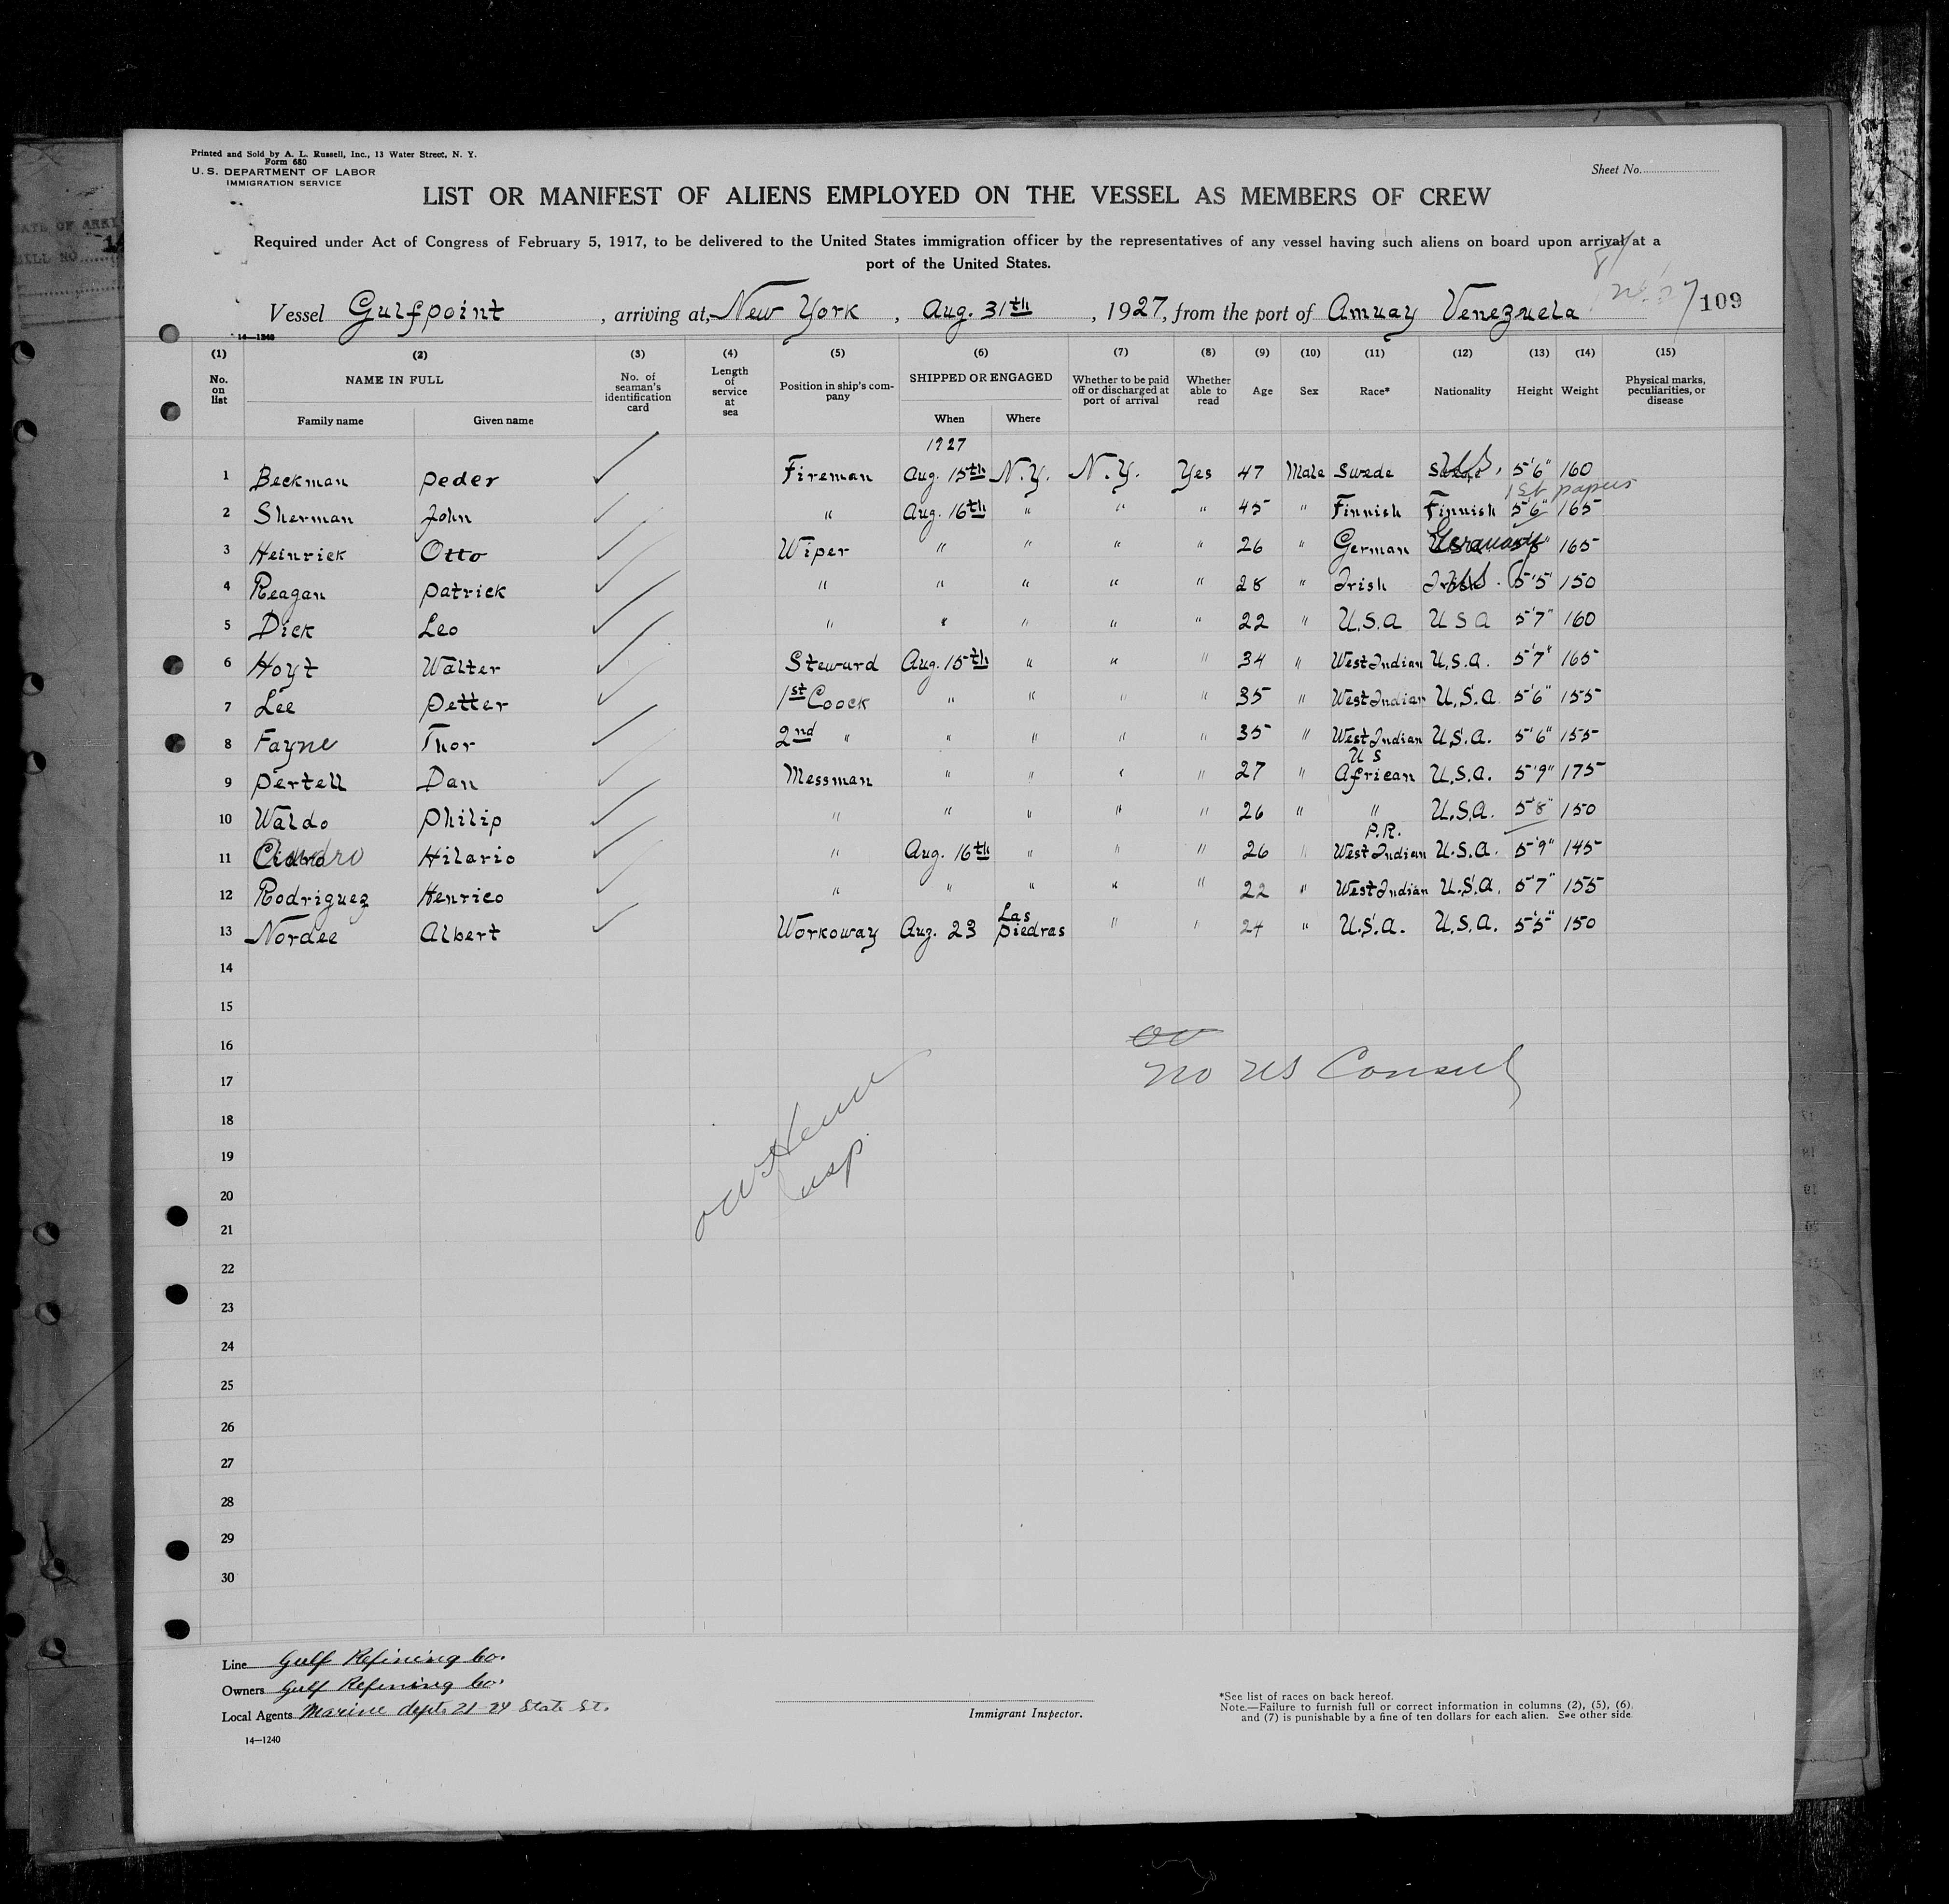 Printed and Sold by A. L. Russell, Inc., 13 Water Street, N. Y.
Form 680
U. S. DEPARTMENT OF LABOR
IMMIGRATION SERVICE
Sheet No.
LIST OR MANIFEST OF ALIENS EMPLOYED ON THE VESSEL AS MEMBERS OF CREW
Required under Act of Congress of February 5, 1917, to be delivered to the United States immigration officer by the representatives of any vessel having such aliens on board upon arrival at a
port of the United States.
Vessel Gulfpoint, arriving at, New York, Aug. 31th, 1927, from the port of Amuay Venezuela 109
14—1240
(1) (2) (3) (4) (5) (6) (7) (8) (9) (10) (11) (12) (13) (14) (15)
No. on list NAME IN FULL Family name Given name No. of seaman's identification card Length of service at sea Position in ship's company SHIPPED OR ENGAGED When Where Whether to be paid off or discharged at port of arrival Whether able to read Age Sex Race* Nationality Height Weight Physical marks, peculiarities, or disease
1927
1 Beckman Peder Fireman Aug. 15th N.Y. N.Y. Yes 47 Male Swede 5'6" 160
1st papers
2 Sherman John " Aug. 16th " " " 45 " Finnish Finnish 5'6" 165
3 Heinrick Otto Wiper " " " " 26 " German Germany 165
4 Reagan Patrick " " " " " 28 " Irish 5'5" 150
5 Dick Leo " " " " " 22 " U.S.A U S A 5'7" 160
6 Hoyt Walter Steward Aug. 15th " " " 34 " West Indian U.S.A. 5'7" 165
7 Lee Petter 1st Coock " " " " 35 " West Indian U.S.A. 5'6" 155
8 Fayne Thor 2nd " " " " " 35 " West Indian U.S.A. 5'6" 155
U S
9 Pertell Dan Messman " " " " 27 " African U.S.A. 5'9" 175
10 Waldo Philip " " " " " 26 " " U.S.A. 5'8" 150
P.R.
11 Hilario " Aug. 16th " " " 26 " West Indian U.S.A. 5'9" 145
12 Rodriguez Henrico " " " " " 22 " West Indian U.S.A. 5'7" 155
13 Nordee Albert Workoway Aug. 23 Las Piedras " " 24 " U.S.A. U.S.A. 5'5" 150
14
15
16
17
no US Consul
18
19
Insp.
20
21
22
23
24
25
26
27
28
29
30
Line Gulf Refining Co.
Owners Gulf Refining Co.
Local Agents Marine dept. 21-24 State St.
14—1240
Immigrant Inspector.
*See list of races on back hereof.
Note.—Failure to furnish full or correct information in columns (2), (5), (6),
and (7) is punishable by a fine of ten dollars for each alien. See other side